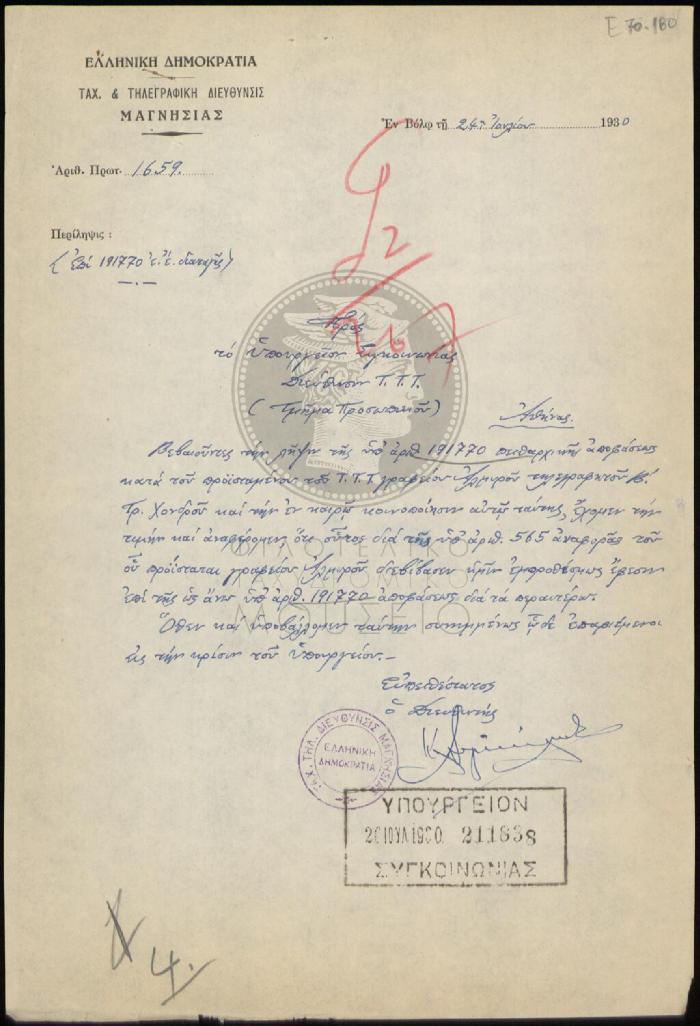 Ε 70.180
ΕΛΛΗΝΙΚΗ ΔΗΜΟΚΡΑΤΙΑ
ΤΑΧ. & ΤΗΛΕΓΡΑΦΙΚΗ ΔΙΕΥΘΥΝΣΙΣ
ΜΑΓΝΗΣΙΑΣ
Ἐν Βόλῳ τῇ 24ῃ Ἰουλίου 1930
Ἀριθ. Πρωτ. 1659.
Περίληψις :
(Ἐπὶ 191770 ἐ. ἔ. διαταγῆς)
Πρὸς
τὸ Ὑπουργεῖον Συγκοινωνίας
Διεύθυνσιν Τ.Τ.Τ.
(Τμῆμα Προσωπικοῦ)
Ἀθήνας.
Βεβαιοῦντες τὴν λῆψιν τῆς ὑπ' ἀριθ 191770 πειθαρχικῆς ἀποφάσεως
κατὰ τοῦ προϊσταμένου τοῦ Τ.Τ.Τ γραφείου Ἁλμυροῦ τηλεγραφητοῦ Β'
Τρ. Χονδροῦ καὶ τὴν ἐν καιρῷ κοινοποίησιν αὐτῷ ταύτης, ἔχομεν τὴν
τιμὴν καὶ ἀναφέρομεν, ὅτι οὗτος διὰ τῆς ὑπ' ἀριθ. 565 ἀναφορᾶς τοῦ
οὗ προΐσταται γραφείου Ἁλμυροῦ διεβίβασεν ἡμῖν ἐμπροθέσμως ἔφεσιν
ἐπὶ τῆς ὡς ἄνω ὑπ' ἀριθ. 191770 ἀποφάσεως διὰ τὰ περαιτέρω.
Ὅθεν καὶ ὑποβάλλομεν ταύτην συνημμένως ὧδε ἐπαφιέμενοι
εἰς τὴν κρίσιν τοῦ Ὑπουργείου.
Εὐπειθέστατος
ὁ Διευθυντὴς
ΤΑΧ. ΤΗΛ. ΔΙΕΥΘΥΝΣΙΣ ΜΑΓΝΗΣΙΑΣ
ΕΛΛΗΝΙΚΗ
ΔΗΜΟΚΡΑΤΙΑ
ΥΠΟΥΡΓΕΙΟΝ
26 ΙΟΥΛ 1930. 211838
ΣΥΓΚΟΙΝΩΝΙΑΣ
4.
ΦΙΛΟΤΕΛΙΚΟ
ΤΑΧΥΔΡΟΜΙΚΟ
ΜΟΥΣΕΙΟ